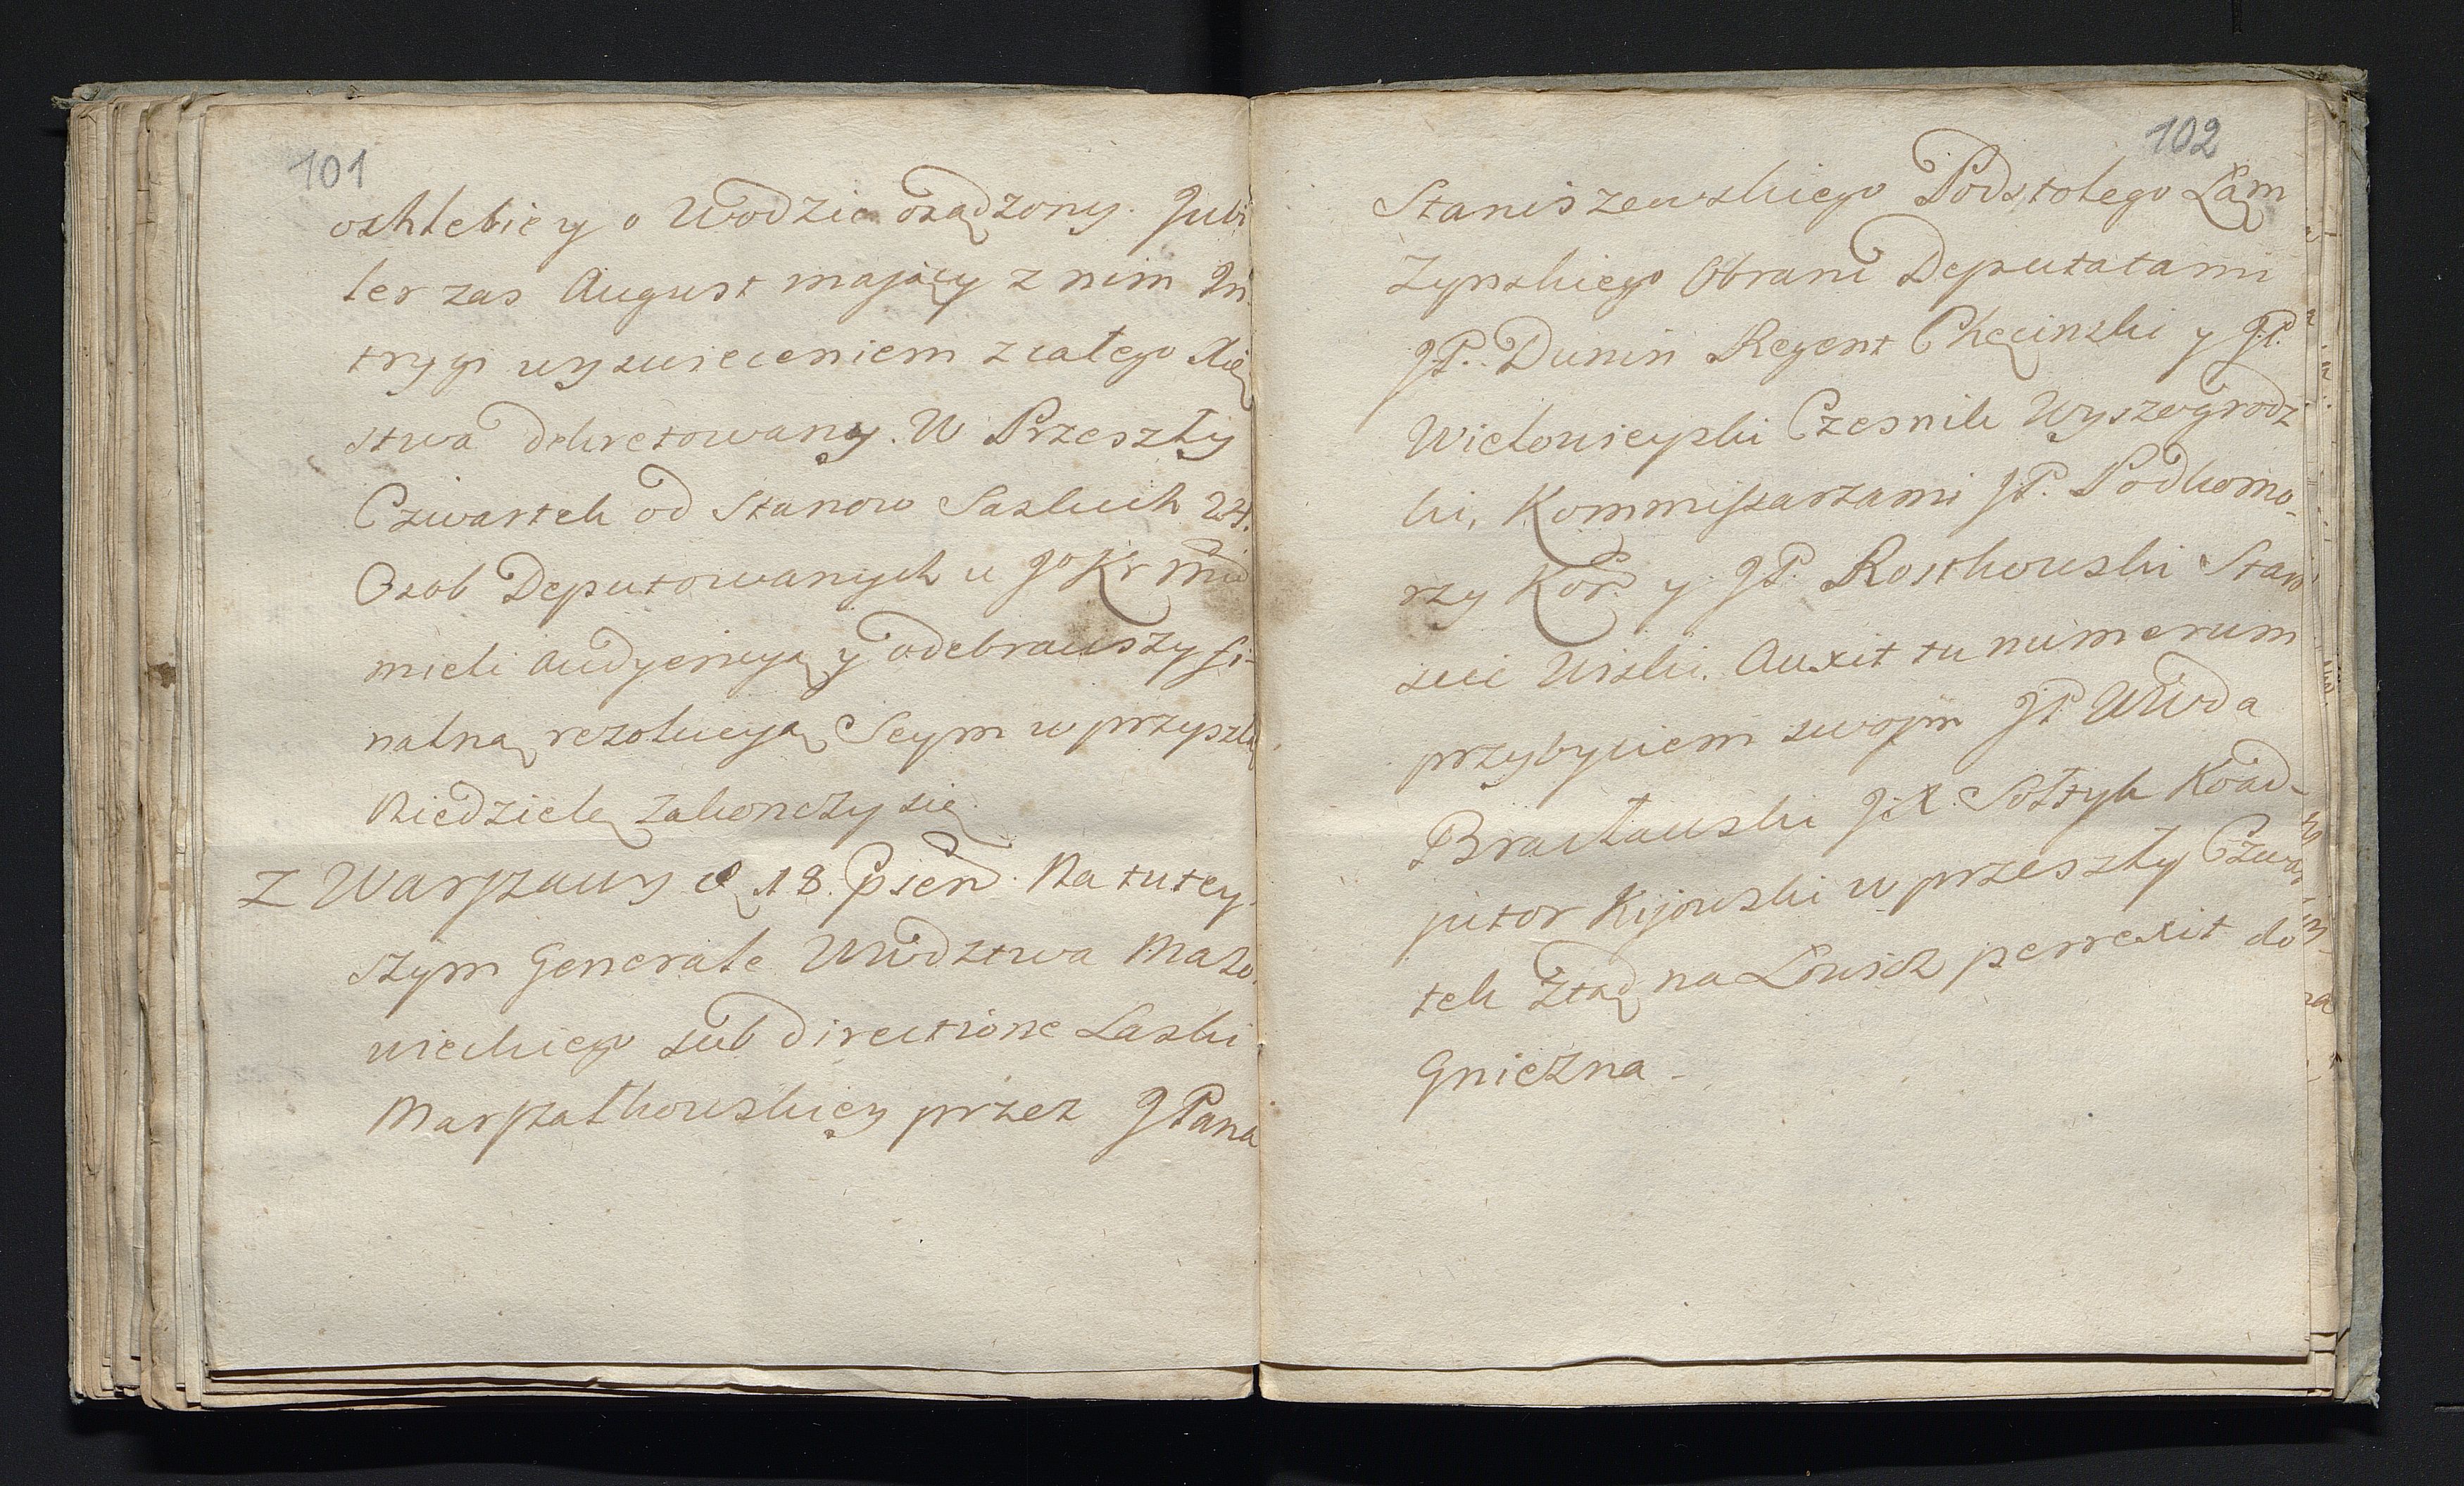 101
o chlebie y o Wodzie osądzony. Jubi
ler zas August mający z nim In
trygi wyswieceniem z całego Xię
stwa dekretowany. W Przeszły
Czwartek od Stanow Saskich 24.
Osob Deputowanych u Jo Kr Mci
mieli audyencyą y odebrawszy fi-
nalną rezolucyą Seym w przyszłą
Niedzielę zakonczy się.
Z Warszawy d 18. Psień. Na tutey-
szym Generale Wwdztwa Mazo-
wieckiego sub directione Laski
Marszałkowskiey przez JPana
102
Staniszewskiego Podstolego Łąm
Zynskiego Obrani Deputatami
JP. Dunin Regent Chęcinski y JP.
Wielowieyski Czesnik Wyszogrodz
ki, Kommissarzami JP. Podkomo-
rzy Kor. y JP. Rostkowski Staro
scic Wiski. Auxit tu numerum
przybyciem swojm JP Wwda
Bracławski JX Sołtyk Koad-
jutor Kijowski w przeszły Czwar
tek ztąd na Łowicz perrexit do
Gniezna -